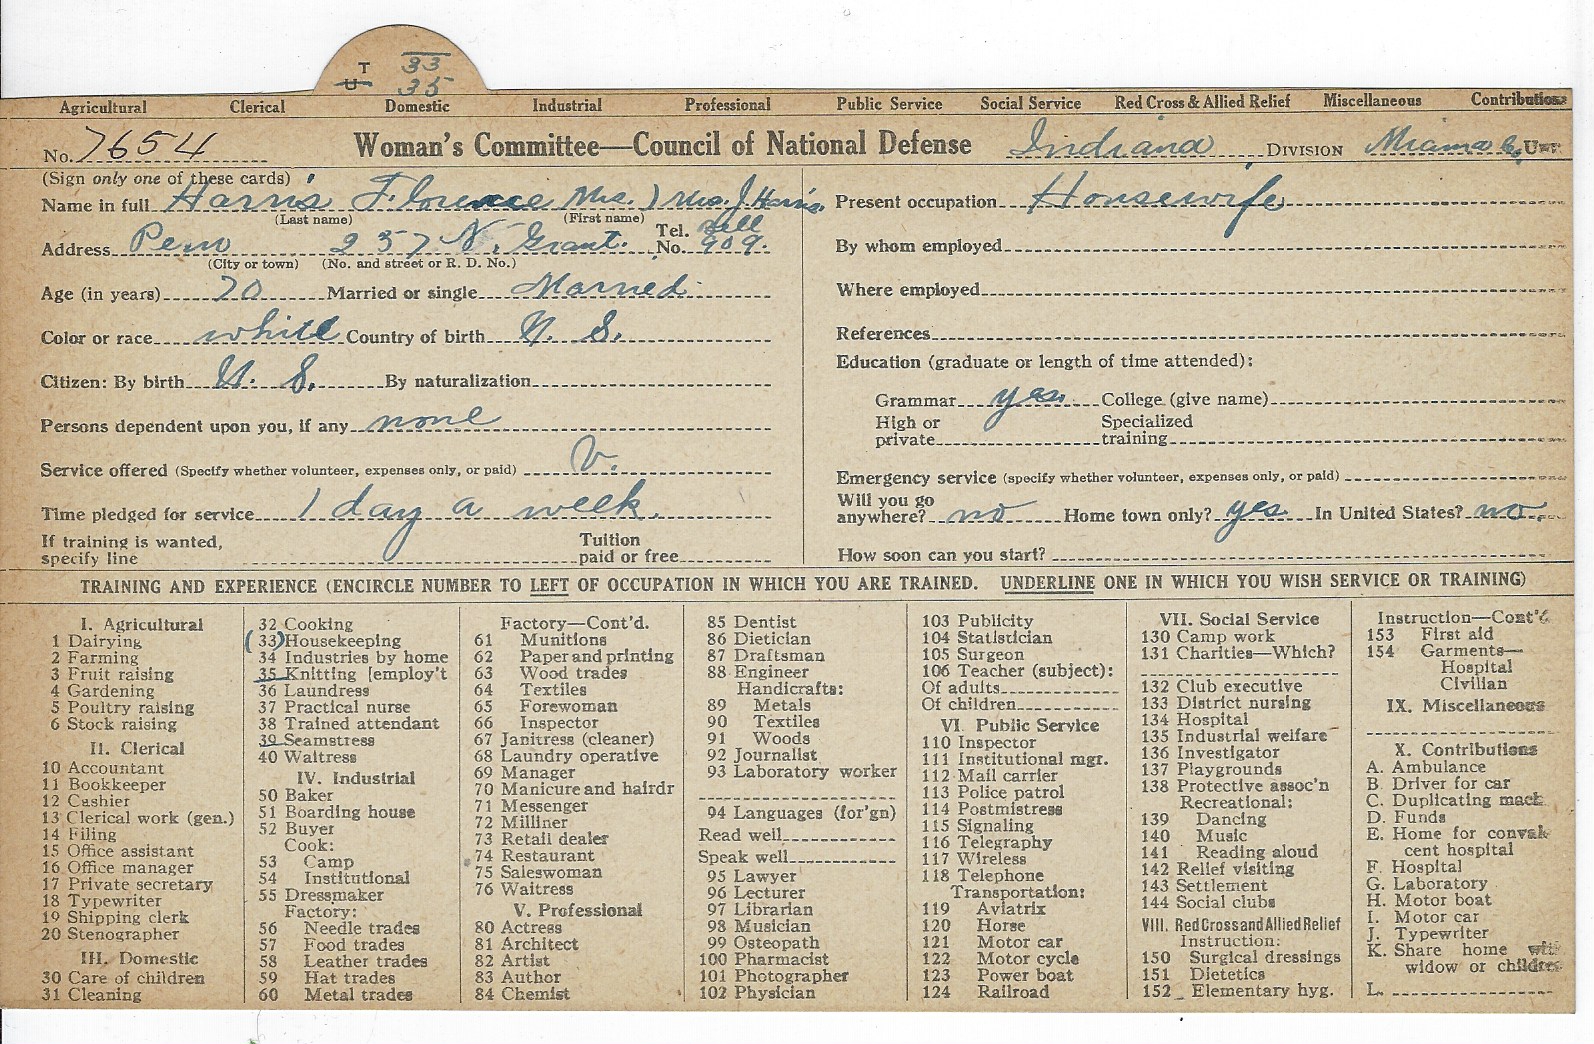 T 33
U 35
Agricultural Clerical Domestic Industrial Professional Public Service Social Service Red Cross & Allied Relief Miscellaneous Contributions
No. 7654 Woman's Committee—Council of National Defense Indiana DIVISION Miami Co. Unit
(Sign only one of these cards)
Name in full Harris Florence Mrs. ) Mrs. J. Harris.
(Last name) (First name)
Address Peru 257 N. Grant. Tel. No. Bell 909.
(City or town) (No. and street or R. D. No.)
Age (in years) 70 Married or single Married
Color or race white Country of birth U. S.
Citizen: By birth U. S. By naturalization
Persons dependent upon you, if any none
Service offered (Specify whether volunteer, expenses only, or paid) V.
Time pledged for service 1 day a week.
If training is wanted, specify line
Tuition paid or free
Present occupation Housewife
By whom employed
Where employed
References
Education (graduate or length of time attended):
Grammar yes. College (give name)
High or private Specialized training
Emergency service (specify whether volunteer, expenses only, or paid)
Will you go anywhere? no Home town only? yes In United States? no.
How soon can you start?
TRAINING AND EXPERIENCE (ENCIRCLE NUMBER TO LEFT OF OCCUPATION IN WHICH YOU ARE TRAINED. UNDERLINE ONE IN WHICH YOU WISH SERVICE OR TRAINING)
I. Agricultural
1 Dairying
2 Farming
3 Fruit raising
4 Gardening
5 Poultry raising
6 Stock raising
II. Clerical
10 Accountant
11 Bookkeeper
12 Cashier
13 Clerical work (gen.)
14 Filing
15 Office assistant
16 Office manager
17 Private secretary
18 Typewriter
19 Shipping clerk
20 Stenographer
III. Domestic
30 Care of children
31 Cleaning
32 Cooking
(33) Housekeeping
34 Industries by home
35 Knitting [employ't
36 Laundress
37 Practical nurse
38 Trained attendant
39 Seamstress
40 Waitress
IV. Industrial
50 Baker
51 Boarding house
52 Buyer
Cook:
53 Camp
54 Institutional
55 Dressmaker
Factory:
56 Needle trades
57 Food trades
58 Leather trades
59 Hat trades
60 Metal trades
Factory—Cont'd.
61 Munitions
62 Paper and printing
63 Wood trades
64 Textiles
65 Forewoman
66 Inspector
67 Janitress (cleaner)
68 Laundry operative
69 Manager
70 Manicure and hairdr
71 Messenger
72 Milliner
73 Retail dealer
74 Restaurant
75 Saleswoman
76 Waitress
V. Professional
80 Actress
81 Architect
82 Artist
83 Author
84 Chemist
85 Dentist
86 Dietician
87 Draftsman
88 Engineer
Handicrafts:
89 Metals
90 Textiles
91 Woods
92 Journalist
93 Laboratory worker
94 Languages (for'gn)
Read well
Speak well
95 Lawyer
96 Lecturer
97 Librarian
98 Musician
99 Osteopath
100 Pharmacist
101 Photographer
102 Physician
103 Publicity
104 Statistician
105 Surgeon
106 Teacher (subject):
Of adults
Of children
VI. Public Service
110 Inspector
111 Institutional mgr.
112 Mail carrier
113 Police patrol
114 Postmistress
115 Signaling
116 Telegraphy
117 Wireless
118 Telephone
Transportation:
119 Aviatrix
120 Horse
121 Motor car
122 Motor cycle
123 Power boat
124 Railroad
VII. Social Service
130 Camp work
131 Charities—Which?
132 Club executive
133 District nursing
134 Hospital
135 Industrial welfare
136 Investigator
137 Playgrounds
138 Protective assoc'n
Recreational:
139 Dancing
140 Music
141 Reading aloud
142 Relief visiting
143 Settlement
144 Social clubs
VIII. Red Cross and Allied Relief
Instruction:
150 Surgical dressings
151 Dietetics
152 Elementary hyg.
Instruction—Cont'd
153 First aid
154 Garments—
Hospital
Civilian
IX. Miscellaneous
X. Contributions
A. Ambulance
B. Driver for car
C. Duplicating mach
D. Funds
E. Home for conval-
cent hospital
F. Hospital
G. Laboratory
H. Motor boat
I. Motor car
J. Typewriter
K. Share home with
widow or children
L.